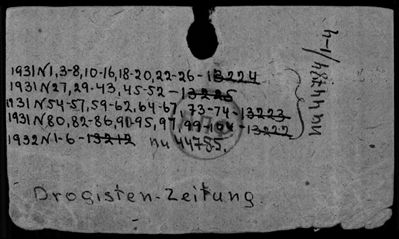 1931 N 1, 3-8, 10-16, 18-20, 22-26 - 13224
1931 N 27, 29-43, 45-52 - 13225
1931 N 54-57, 59-62, 64-67, 73-74 - 13223
1931 N 80, 82-86, 91-95, 97, 99-104 - 13222
1932 N 1-6 - 13212 nu 44785.
nu 44784/1-4
Drogisten-Zeitung.